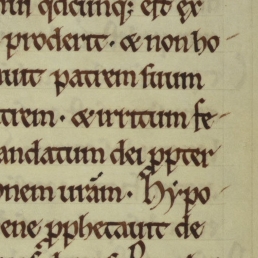 qcūnq; est ex
proderit. & non ho
patrem suum
trem. & irritum fe
andatum dei ꝓpter
onem urām. Hypo
ene ꝓphetauit de